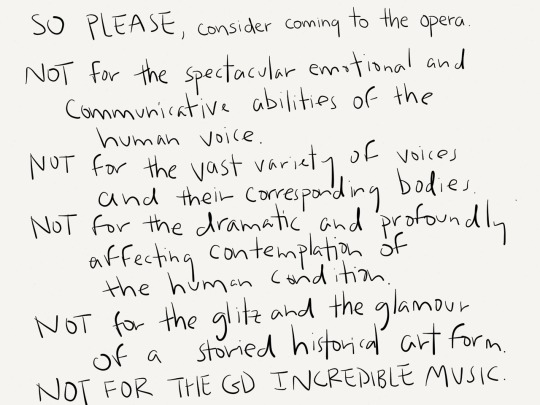 SO PLEASE, consider coming to the opera.
NOT for the spectacular emotional and
communicative abilities of the
human voice.
NOT for the vast variety of voices
and their corresponding bodies.
NOT for the dramatic and profoundly
affecting contemplation of
the human condition.
NOT for the glitz and the glamour
of a storied historical art form.
NOT FOR THE GD INCREDIBLE MUSIC.